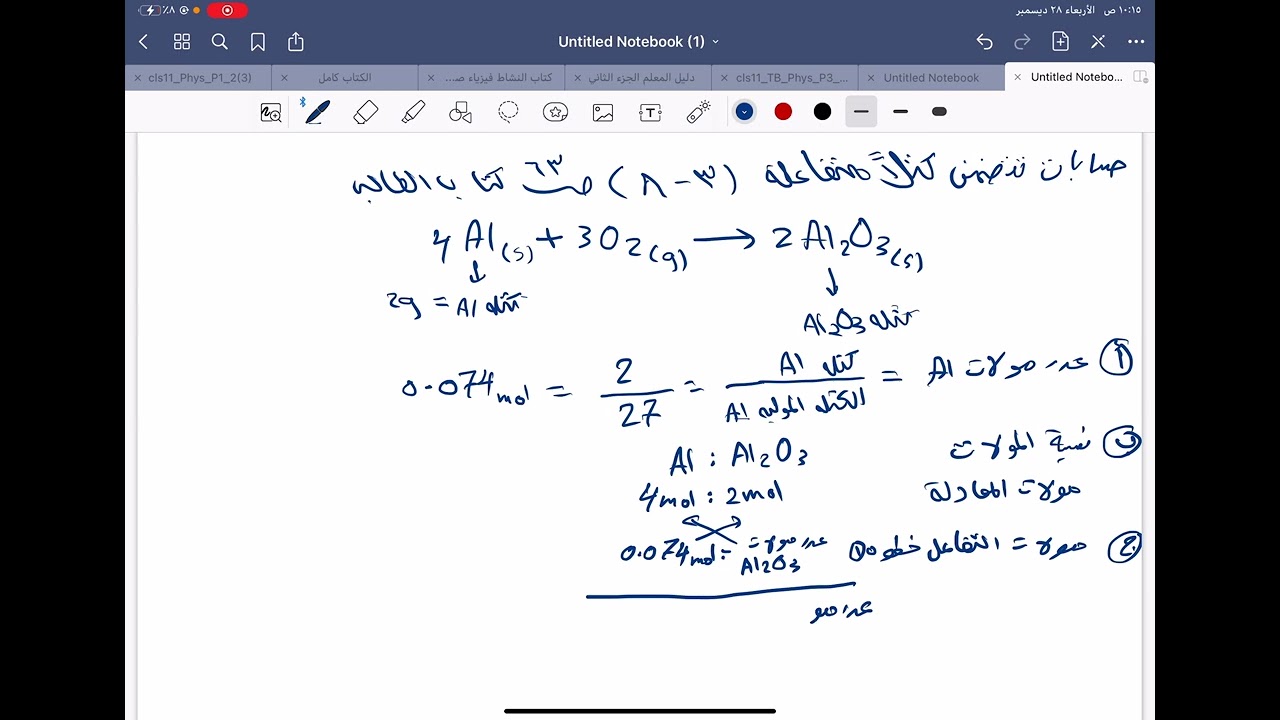 ١٠:١٥ ص الأربعاء ٢٨ ديسمبر
٪٨
Untitled Notebook (1)
cls11_Phys_P1_2(3)
الكتاب كامل
كتاب النشاط فيزياء صـ...
دليل المعلم الجزء الثاني
cls11_TB_Phys_P3_...
Untitled Notebook
Untitled Notebo...
حسابات تتضمن كتلاً متفاعلة (٣-٨) صـ ٦٣ كتاب الطالب
4Al(s) + 3O2(g) → 2Al2O3(s)
كتلة Al = 2g
كتلة Al2O3
① عدد مولات Al = كتلة Al / الكتلة المولية Al = 2/27 = 0.074 mol
② نسبة المولات
Al : Al2O3
مولات المعادلة
4mol : 2mol
② مولات التفاعل خطوة ①
0.074mol : عدد مولات Al2O3
عدد مو